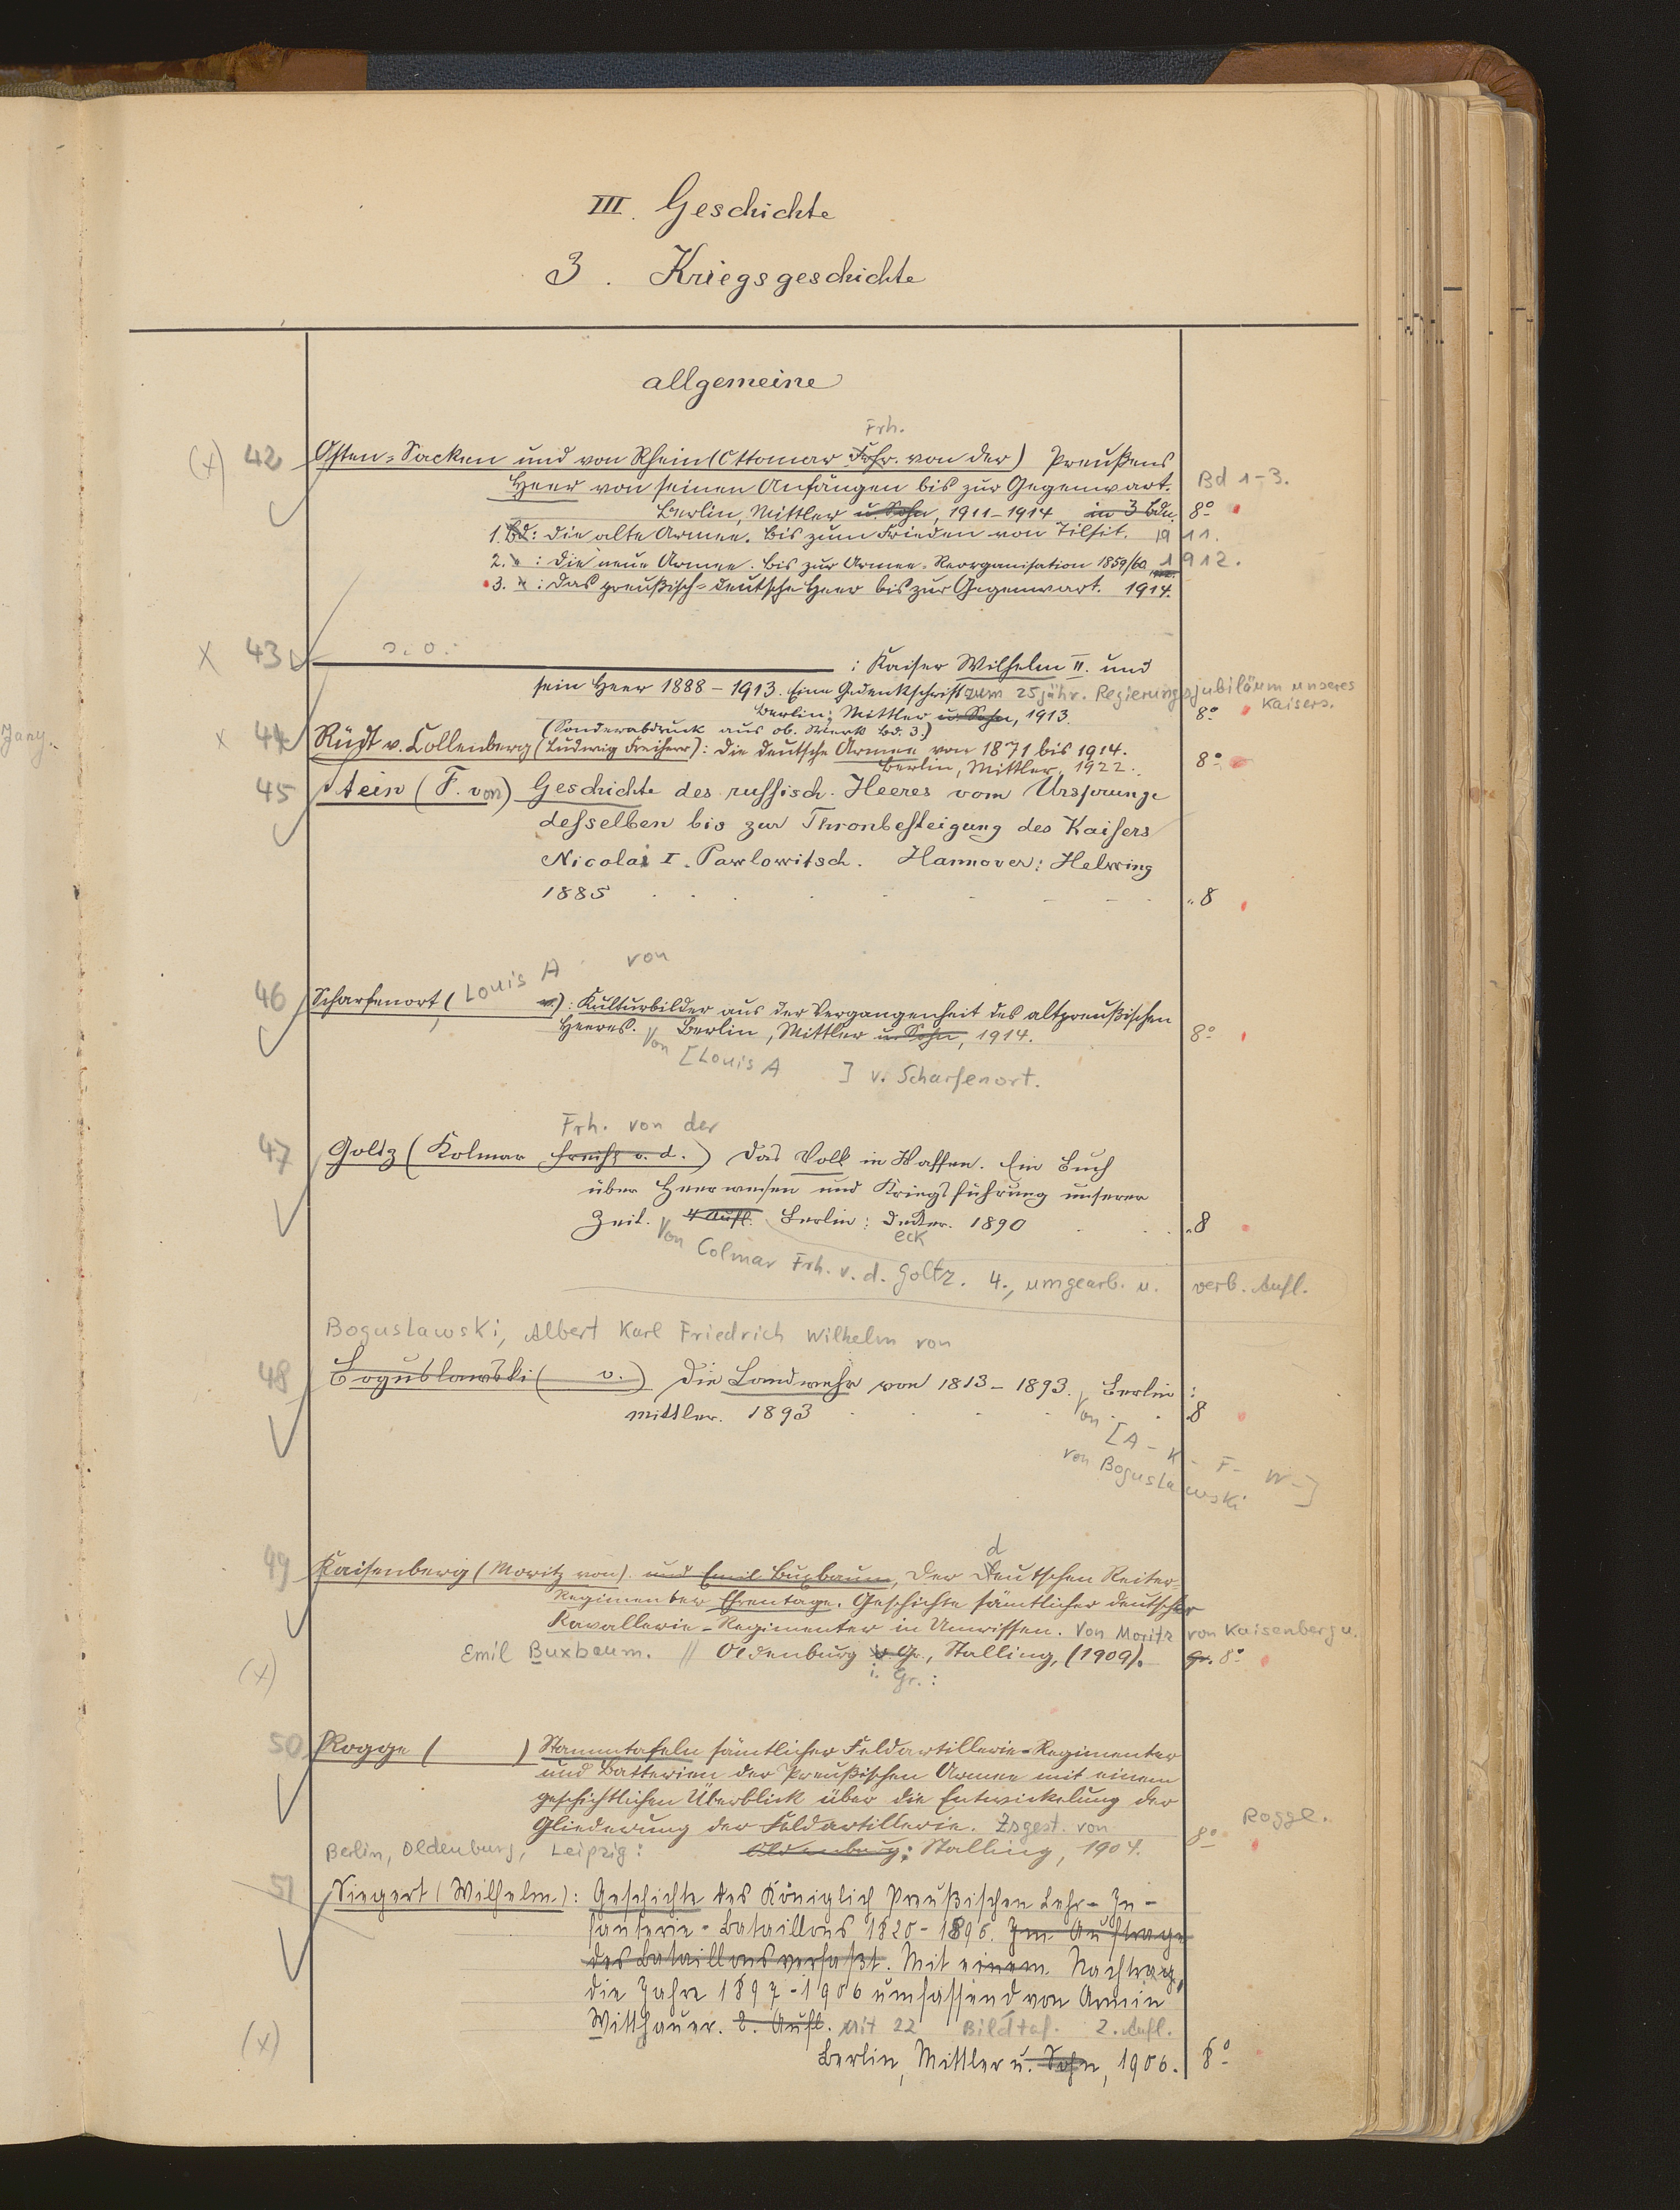 III. Geschichte
3. Kriegsgeschichte
allgemeine
Frh.
(x) 42 Osten-Sacken und von Rhein (Ottomar Frhr. von der) Preußens
Heer von seinen Anfängen bis zur Gegenwart. Bd 1-3.
Berlin, Mittler u. Sohn, 1911-1914 in 3 Bdn. 8°
1. Bd: Die alte Armee. Bis zum Frieden von Tilsit. 1911.
2. " : Die neue Armee. Bis zur Armee-Reorganisation 1859/60 1912.
3. " : Das preußisch-deutsche Heer bis zur Gegenwart. 1914.
x 43 s. o. : Kaiser Wilhelm II. und
sein Heer 1888-1913. Eine Gedenkschrift zum 25jähr. Regierungsjubiläum unseres
Kaisers.
Berlin; Mittler u. Sohn, 1913. 8°
(Sonderabdruck aus ob. Werk Bd. 3.)
Jany.
x 44 Rüdt v. Collenberg (Ludwig Freiherr): Die deutsche Armee von 1871 bis 1914.
Berlin, Mittler, 1922. 8°
45 Stein (F. von) Geschichte des russisch. Heeres vom Ursprunge
desselben bis zur Thronbesteigung des Kaisers
Nicolai I. Pawlowitsch. Hannover: Helwing
1885 8
von
46 Scharfenort (Louis A v.): Kulturbilder aus der Vergangenheit des altpreußischen
Heeres. Berlin, Mittler u. Sohn, 1914. 8°
Von [Louis A ] v. Scharfenort.
Frh. von der
47 Goltz (Kolmar Freih. v. d.) Das Volk in Waffen. Ein Buch
über Heerwesen und Kriegsführung unserer
Zeit. 4 Aufl. Berlin: Decker. 1890 8
eck
Von Colmar Frh. v. d. Goltz. 4., umgearb. u. verb. Aufl.
Boguslawski, Albert Karl Friedrich Wilhelm von
48 Boguslawski ( v.) Die Landwehr von 1813-1893. Berlin:
Mittler. 1893 8
Von [A- K- F- W-]
von Boguslawski
d
49 Kaisenberg (Moritz von) und Emil Buxbaum, Der Deutschen Reiter-
Regimenter Ehrentage. Geschichte sämtlicher deutscher
Kavallerie-Regimenter in Umrissen. Von Moritz von Kaisenberg u.
Emil Buxbaum. // Oldenburg i. Gr., Stalling, (1909). Gr. 8°
(x) i. Gr.:
50 Rogge ( ) Stammtafeln sämtlicher Feldartillerie-Regimenter
und Batterien der Preußischen Armee mit einem
geschichtlichen Überblick über die Entwickelung der
Gliederung der Feldartillerie. Zsgest. von Rogge.
Berlin, Oldenburg, Leipzig: Oldenburg: Stalling, 1904. 8°
51 Siegert (Wilhelm): Geschichte des Königlich Preußischen Lehr-In-
fanterie-Bataillons 1820-1896. Im Auftrage
des Bataillons verfaßt. Mit einem Nachtrag,
die Jahre 1897-1906 umfassend von Armin
Witthauer. 2. Aufl. Mit 22 Bildtaf. 2. Aufl.
(x) Berlin, Mittler u. Sohn, 1906. 8°